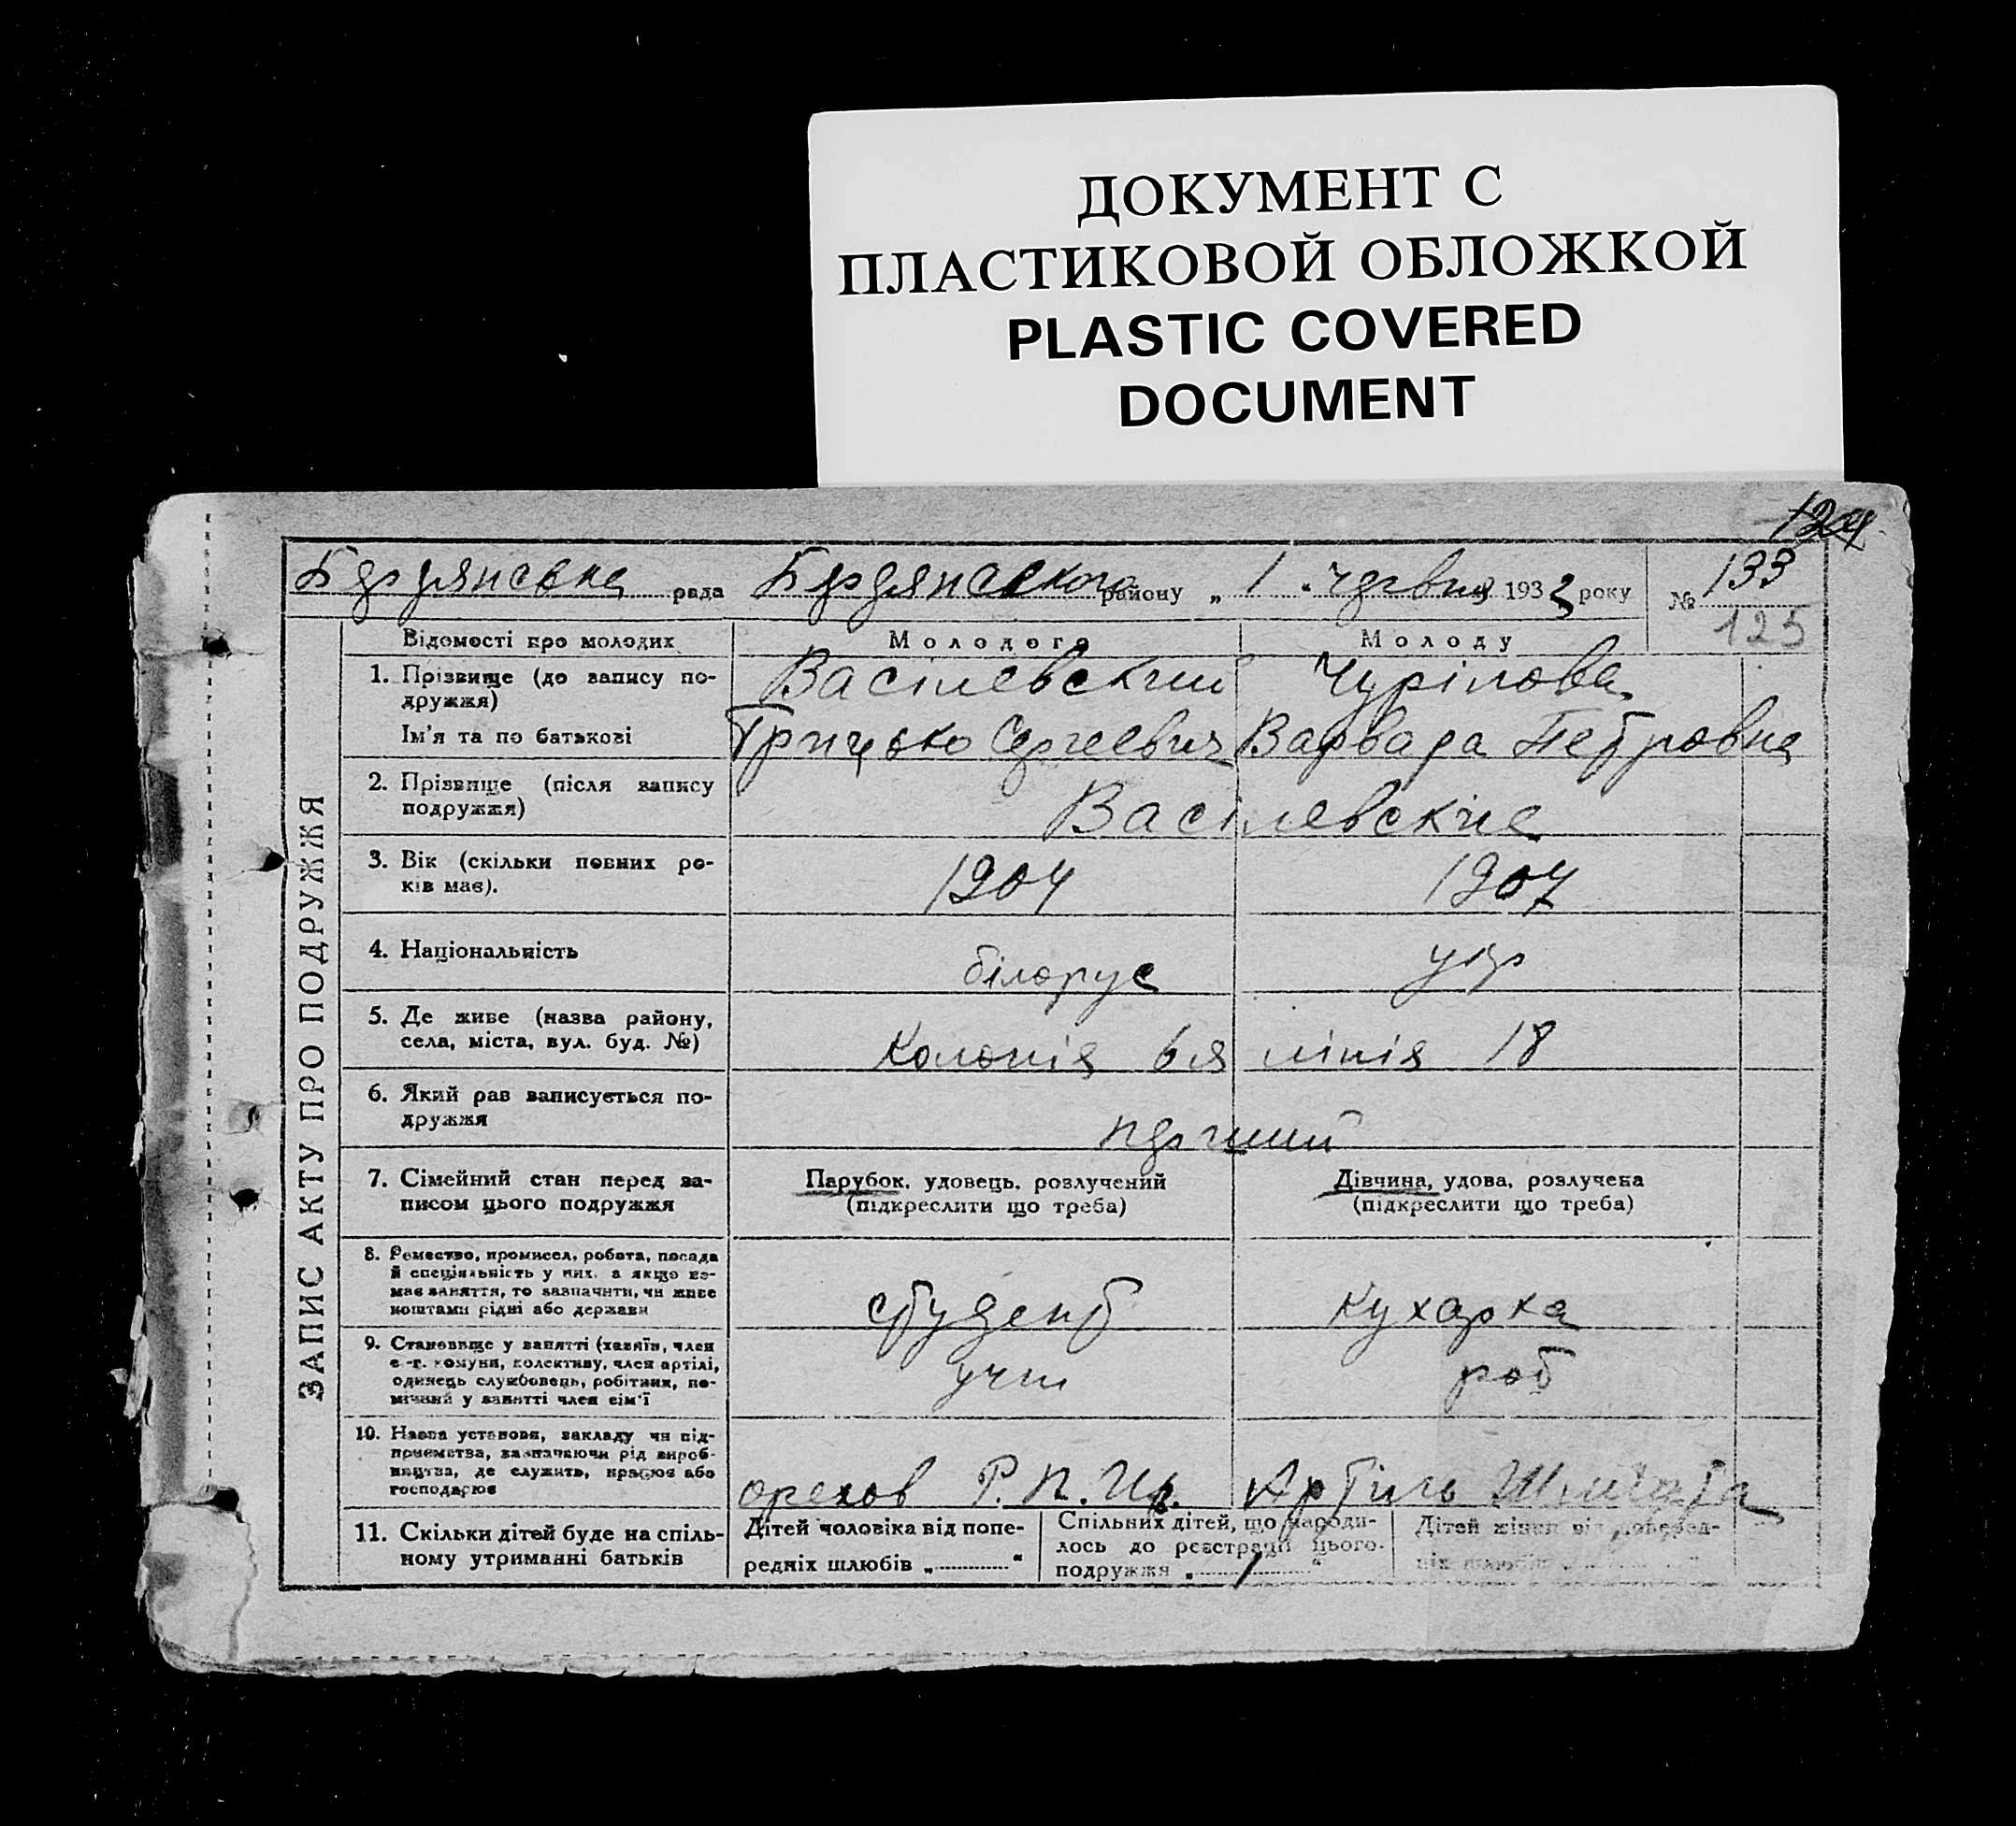 ДОКУМЕНТ С
ПЛАСТИКОВОЙ ОБЛОЖКОЙ
PLASTIC COVERED
DOCUMENT
124
Бердянська рада Бердянського району „ 1 " червня 1933 року № 133
125
Відомості про молодих Молодого Молоду
ЗАПИС АКТУ ПРО ПОДРУЖЖЯ
1. Прізвище (до запису по- Васілевский Чурілова
дружжя)
Ім'я та по батькові Грицько Сергеевич Варвара Петровна
2. Прізвище (після запису
подружжя) Васілевские
3. Вік (скільки повних ро- 1904 1907
ків має).
4. Національність білорус укр
5. Де живе (назва району,
села, міста, вул. буд. №) Колонія 6 ая лінія 18
6. Який раз записується по-
дружжя перший
7. Сімейний стан перед за- Парубок, удовець, розлучений Дівчина, удова, розлучена
писом цього подружжя (підкреслити що треба) (підкреслити що треба)
8. Ремество, промисел, робота, посада
й спеціяльність у них, а якщо не-
має заняття, то зазначити, чи живе
коштами рідні або держави студент кухарка
9. Становище у занятті (хазяїн, член
с.-г. комуни, колективу, член артілі,
одинець службовець, робітник, по- учн роб
мічний у занятті член сім'ї
10. Назва установи, закладу чи під-
приємства, зазначаючи рід вироб-
ництва, де служить, працює або
господарює орехов Р. П. Артіль
11. Скільки дітей буде на спіль-
ному утриманні батьків
Дітей чоловіка від попе-
редніх шлюбів „ "
Спільних дітей, що народи-
лось до реєстрації цього
подружжя „ 1 "
Дітей жінки від поперед-
ніх шлюбів „ "